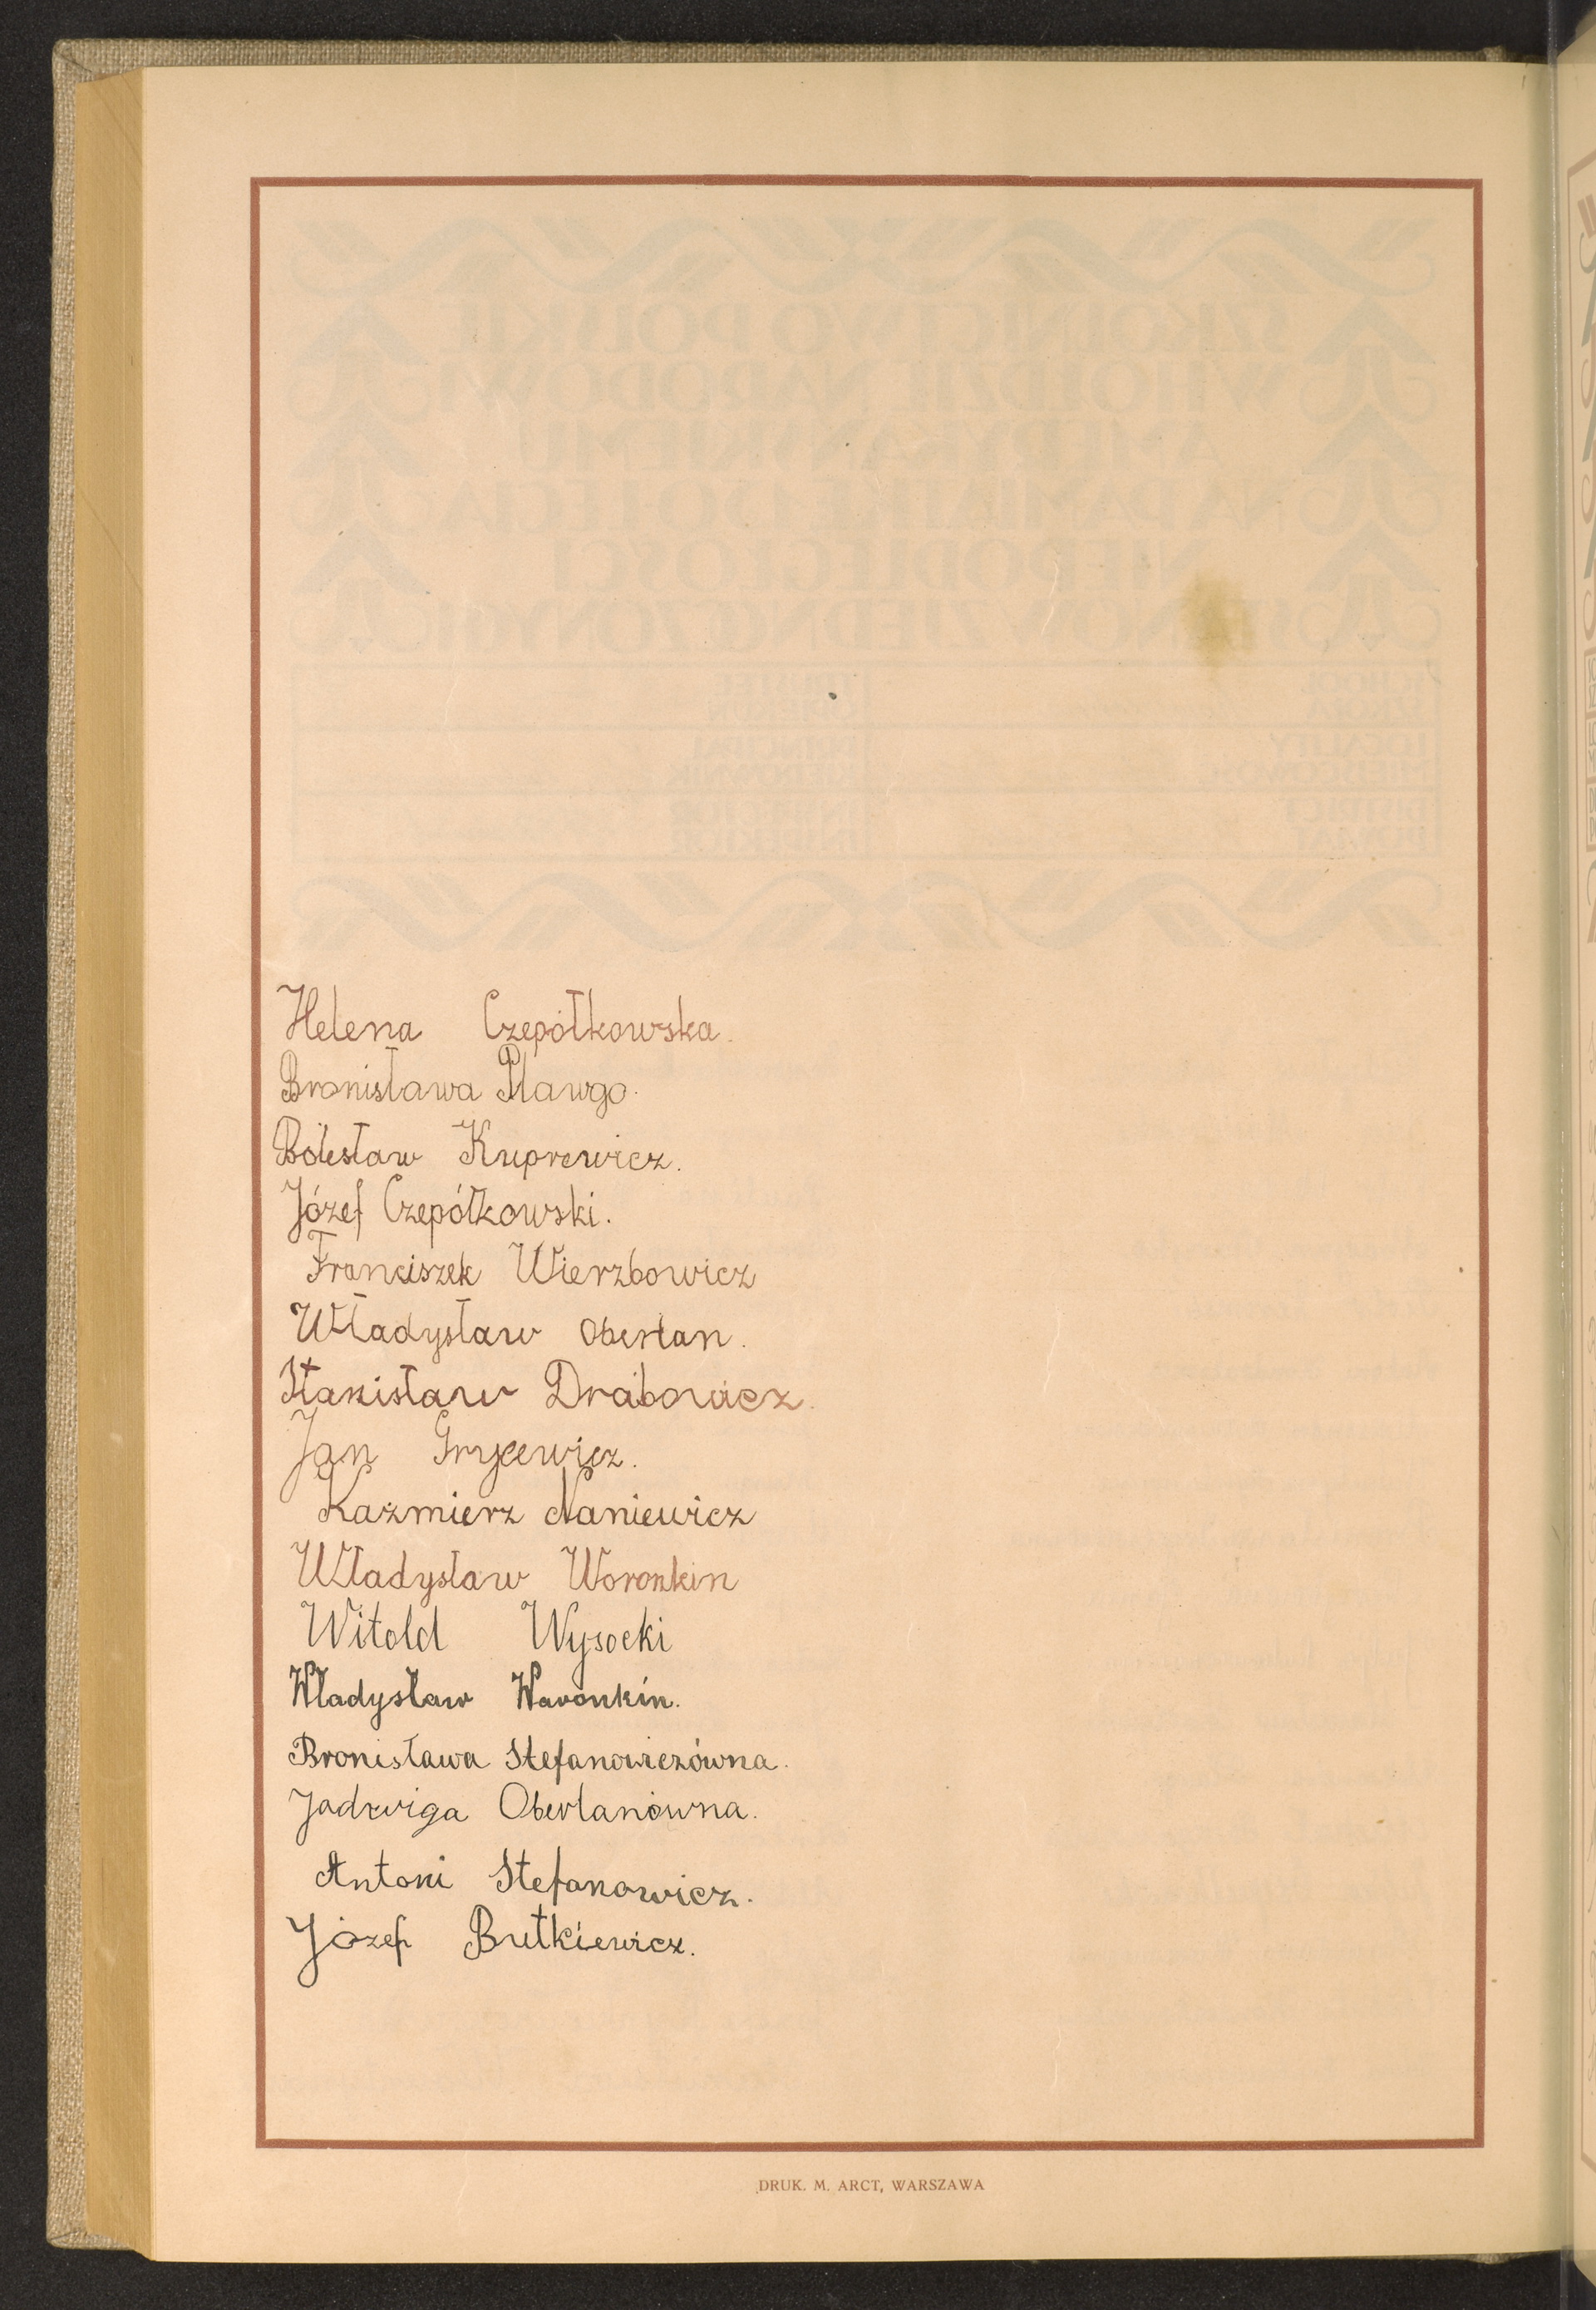 Helena Czepółkowska.
Bronisława Pławgo.
Bólesław Kuprewicz.
Józef Czepółkowski.
Franciszek Wierzbowicz
Władysław Obertan.
Stanisław Drabowicz.
Jan Grycewicz.
Kazmierz Naniewicz
Władysław Woronkin
Witold Wysocki
Władysław Waronkin.
Bronisława Stefanowiczówna.
Jadwiga Obertanówna.
Antoni Stefanowicz.
Józef Butkiewicz.
DRUK. M. ARCT, WARSZAWA